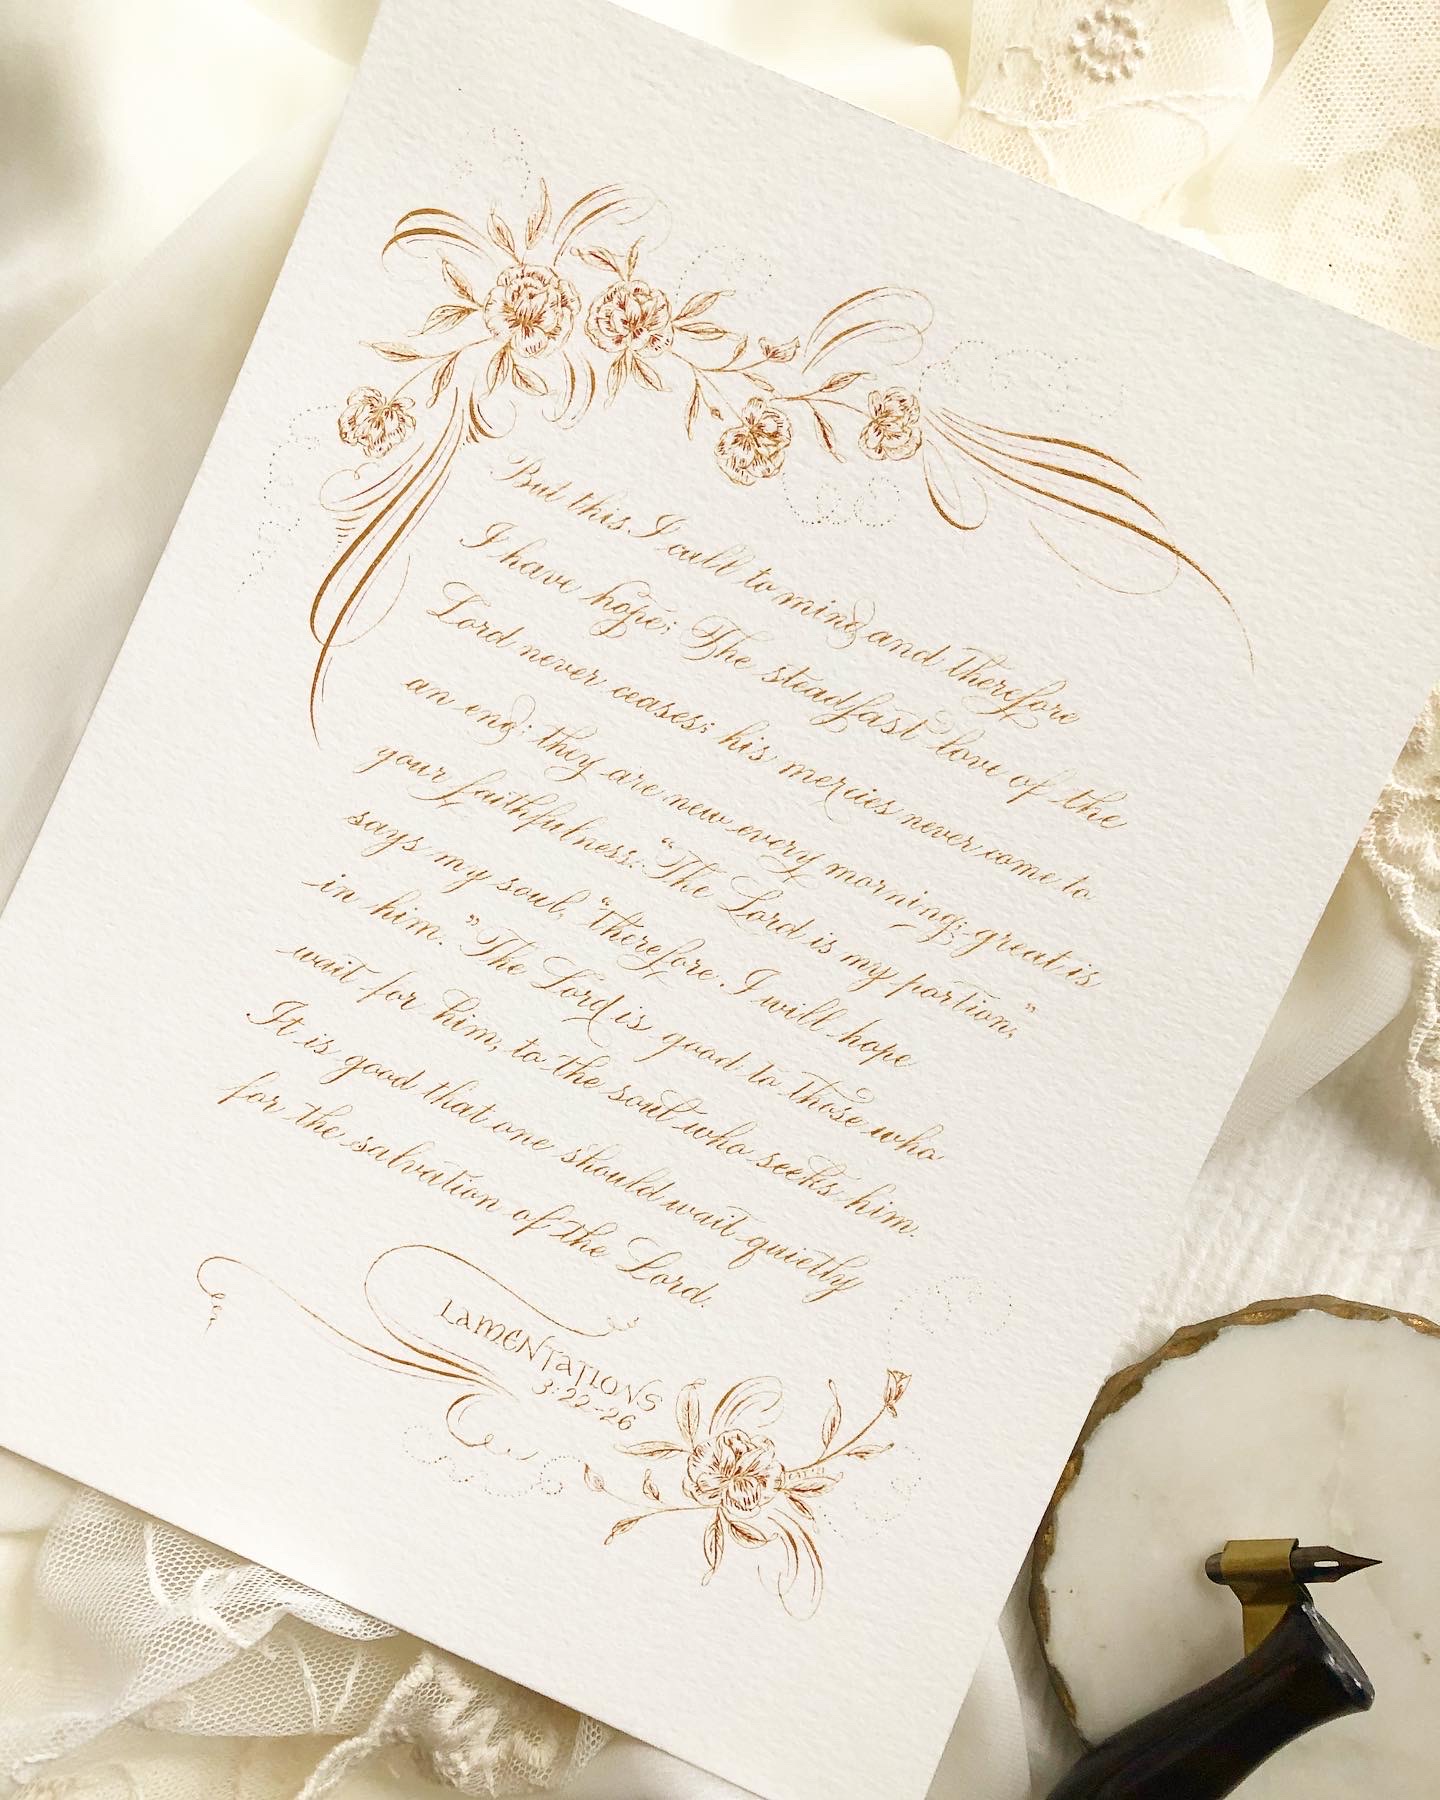 But this I call to mind and therefore
I have hope: The steadfast love of the
Lord never ceases; his mercies never come to
an end; they are new every morning; great is
your faithfulness. "The Lord is my portion,"
says my soul, "therefore I will hope
in him." The Lord is good to those who
wait for him, to the soul who seeks him.
It is good that one should wait quietly
for the salvation of the Lord.
LAMENTATIONS
3:22-26